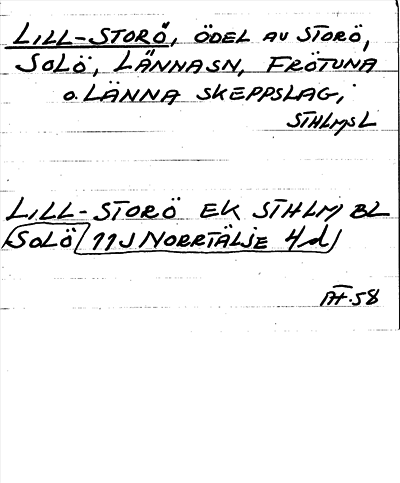 LILL-STORÖ, ÖDEL AV STORÖ,
SOLÖ, LÄNNASN, FRÖTUNA
o. LÄNNA SKEPPSLAG,
STHLMS L
LILL-STORÖ EK STHLM BL
SOLÖ 11J NORRTÄLJE 4d
58